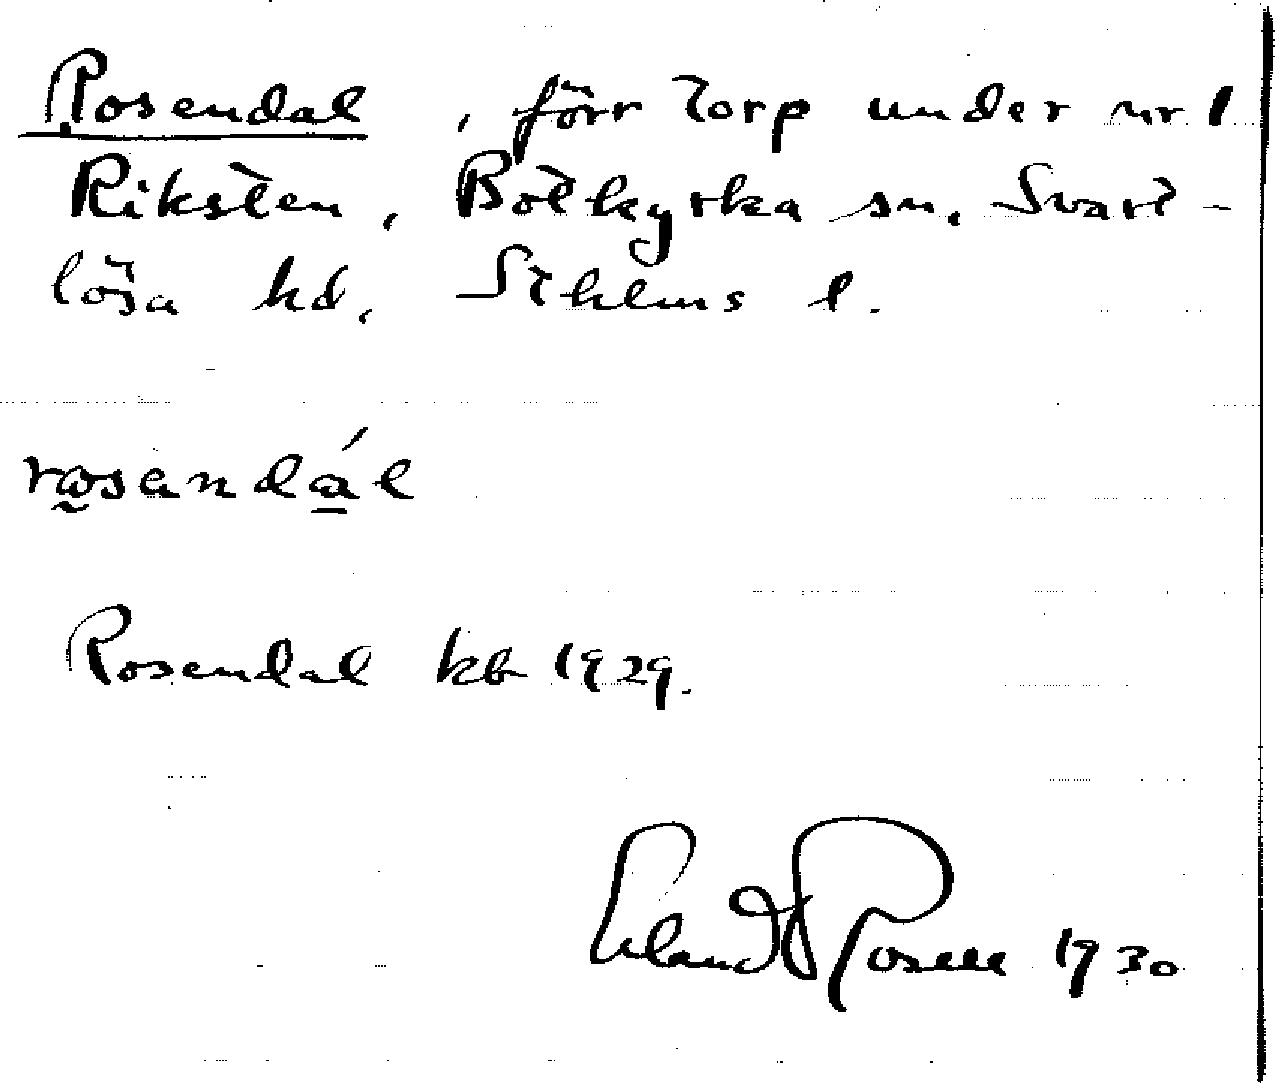 Rosendal, förr torp under nr 1
Riksten, Botkyrka sn, Svart-
lösa hd, Sthlms l.
rosandál
Rosendal kb 1929.
Erland Rosell 1930